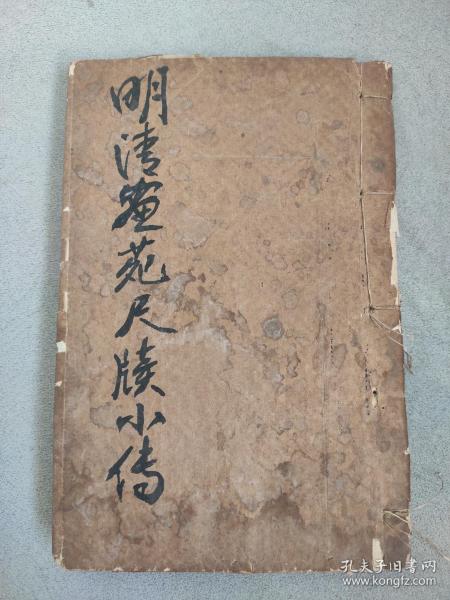 明清画苑尺牍小传
孔夫子旧书网
www.kongfz.com